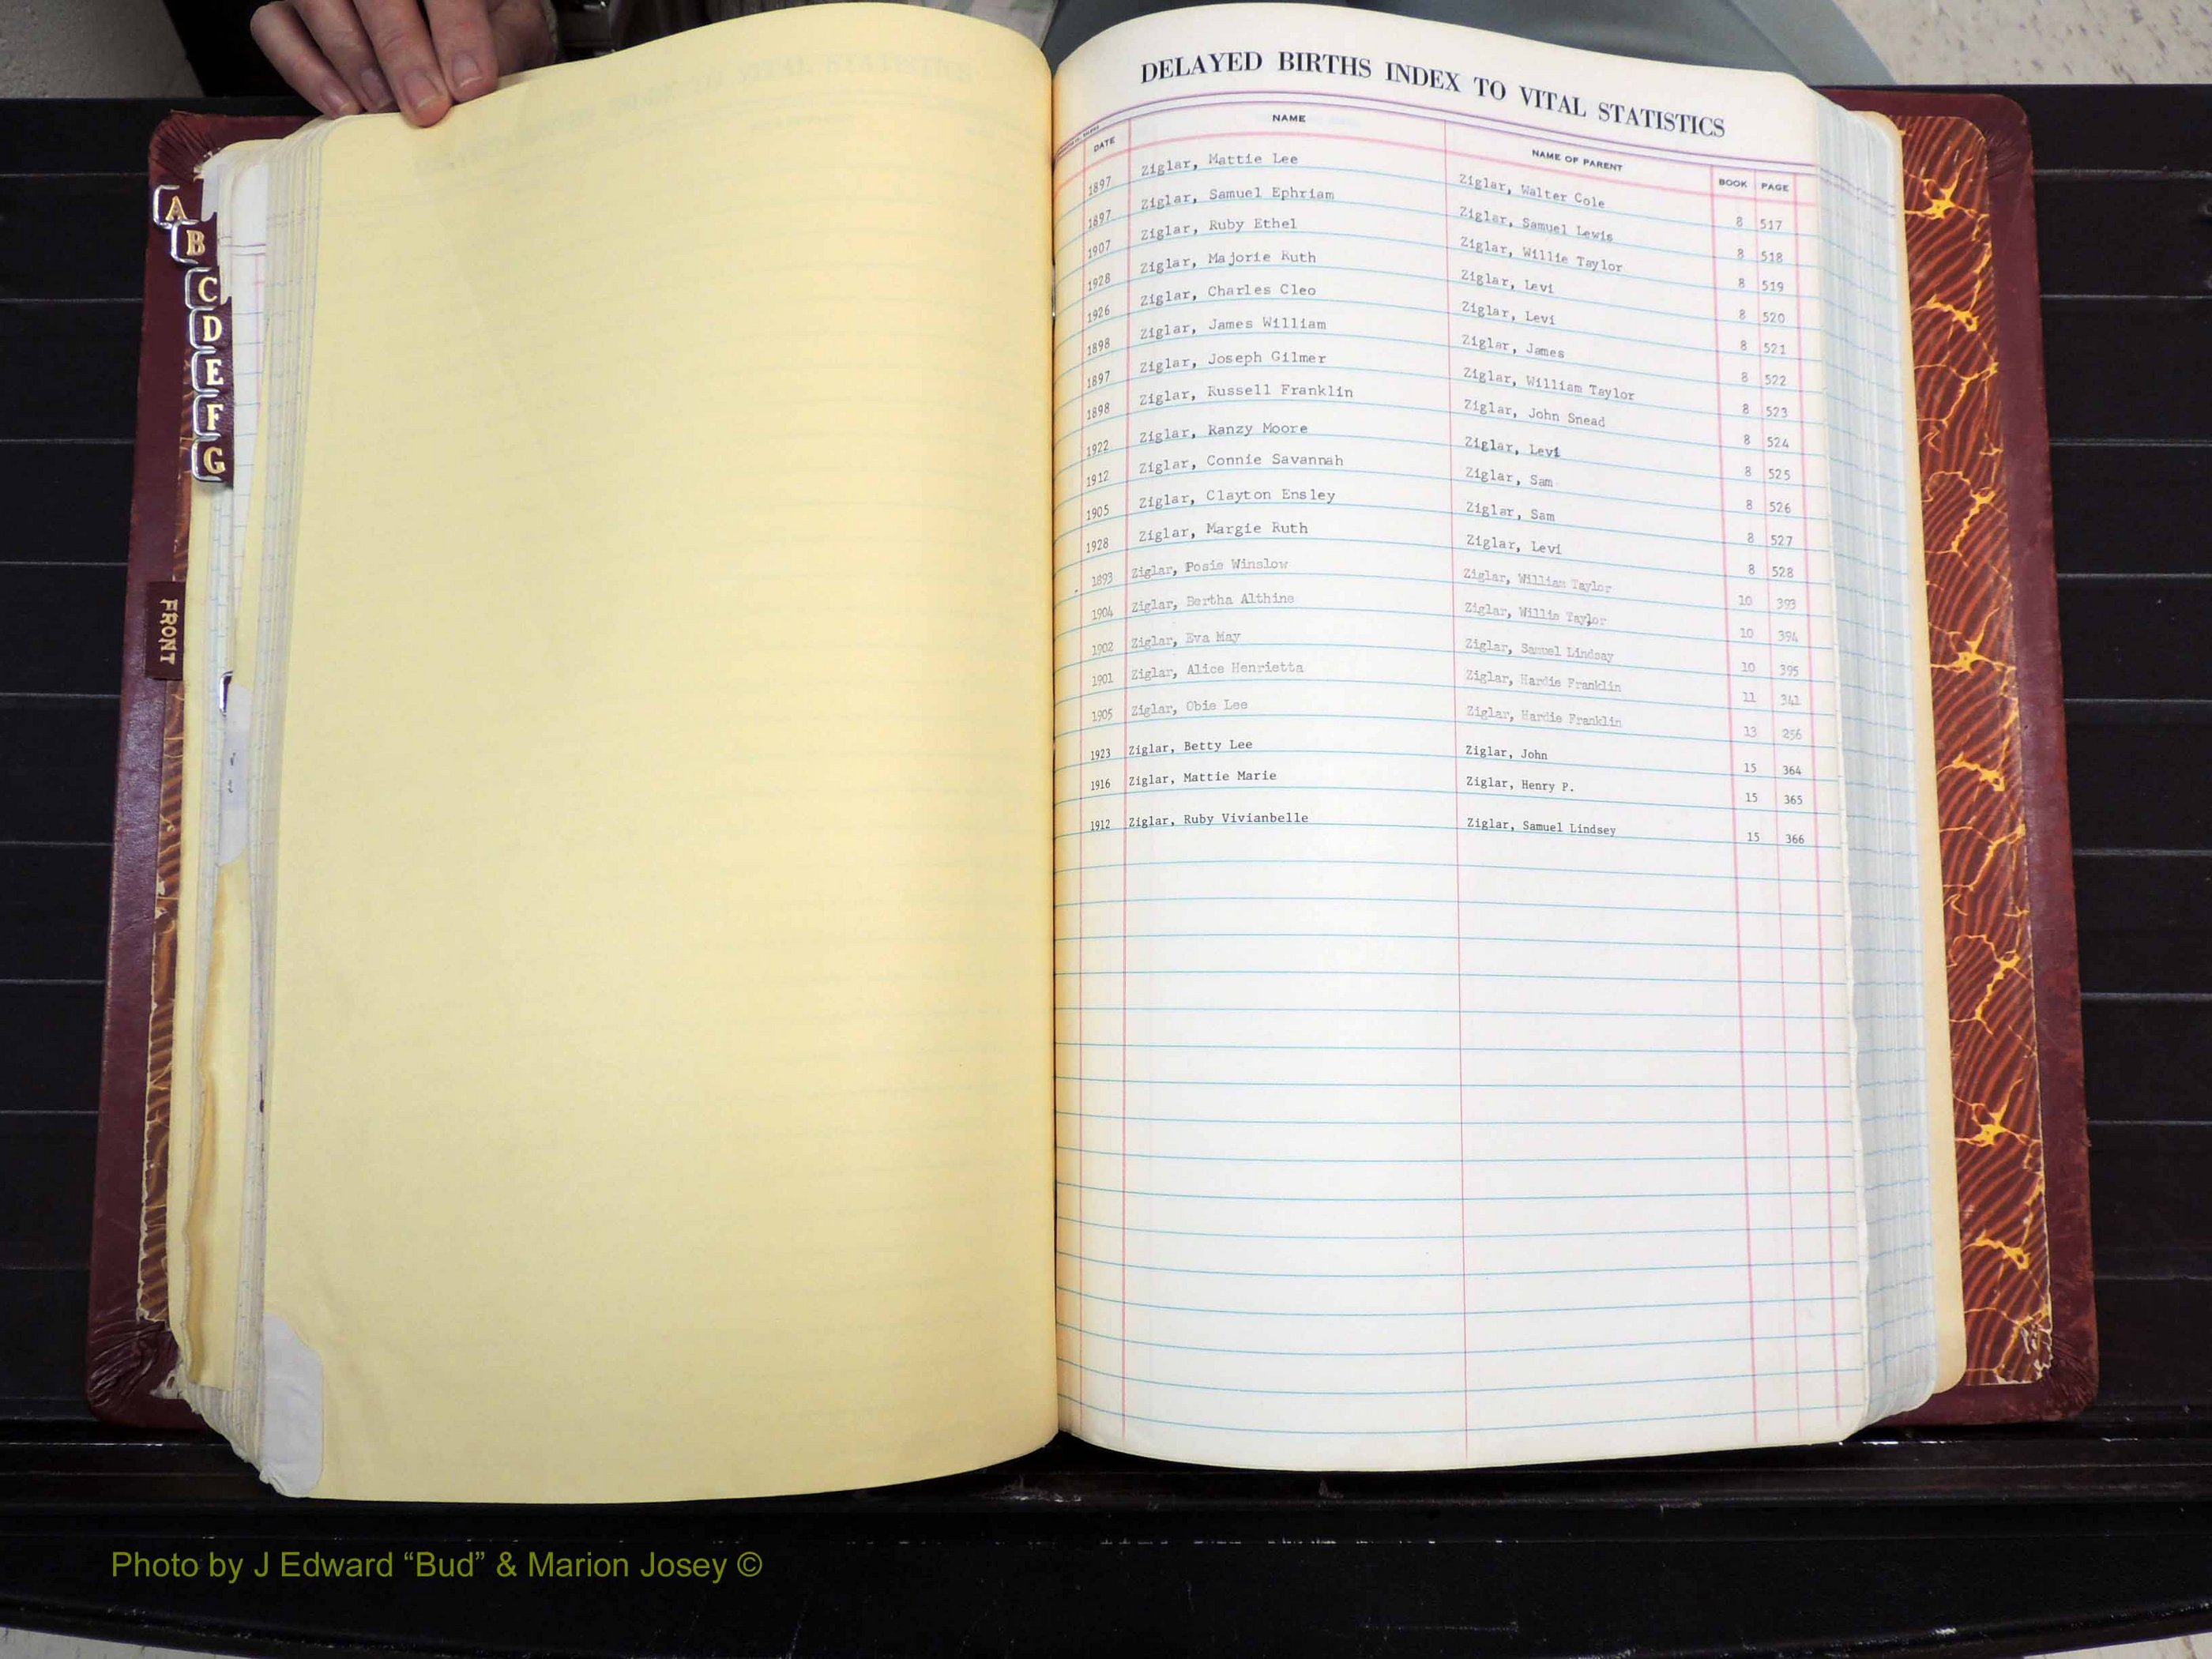 A
B
C
D
E
F
G
FRONT
DELAYED BIRTHS INDEX TO VITAL STATISTICS
DATE NAME NAME OF PARENT BOOK PAGE
1897 Ziglar, Mattie Lee Ziglar, Walter Cole 8 517
1897 Ziglar, Samuel Ephriam Ziglar, Samuel Lewis 8 518
1907 Ziglar, Ruby Ethel Ziglar, Willie Taylor 8 519
1928 Ziglar, Majorie Ruth Ziglar, Levi 8 520
1926 Ziglar, Charles Cleo Ziglar, Levi 8 521
1898 Ziglar, James William Ziglar, James 8 522
1897 Ziglar, Joseph Gilmer Ziglar, William Taylor 8 523
1898 Ziglar, Russell Franklin Ziglar, John Snead 8 524
1922 Ziglar, Ranzy Moore Ziglar, Levi 8 525
1912 Ziglar, Connie Savannah Ziglar, Sam 8 526
1905 Ziglar, Clayton Ensley Ziglar, Sam 8 527
1928 Ziglar, Margie Ruth Ziglar, Levi 8 528
1893 Ziglar, Posie Winslow Ziglar, William Taylor 10 393
1904 Ziglar, Bertha Althine Ziglar, Willis Taylor 10 394
1902 Ziglar, Eva May Ziglar, Samuel Lindsay 10 395
1901 Ziglar, Alice Henrietta Ziglar, Hardie Franklin 11 341
1905 Ziglar, Obie Lee Ziglar, Hardie Franklin 13 256
1923 Ziglar, Betty Lee Ziglar, John 15 364
1916 Ziglar, Mattie Marie Ziglar, Henry P. 15 365
1912 Ziglar, Ruby Vivianbelle Ziglar, Samuel Lindsey 15 366
Photo by J Edward “Bud” & Marion Josey ©